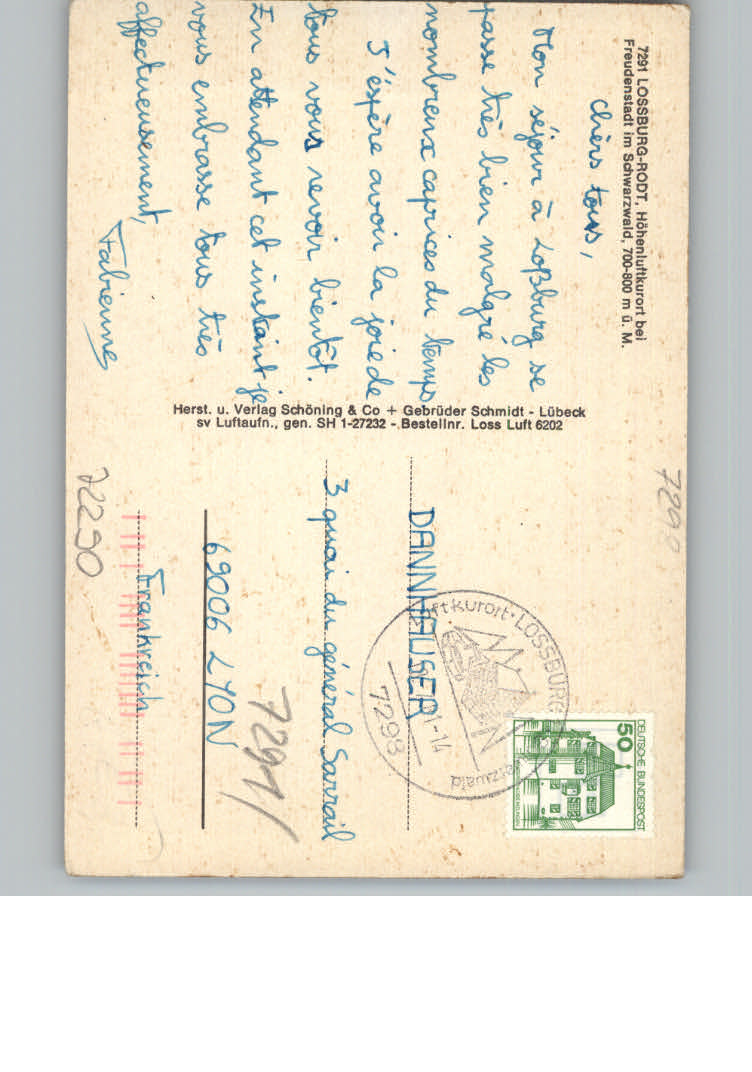 7291 LOSSBURG-RODT, Höhenluftkurort bei
Freudenstadt im Schwarzwald, 700-800 m ü. M.
Chers tous,
Mon séjour à Loßburg se
passe très bien malgré les
nombreux caprices du temps
J'éspère avoir la joie de
tous vous revoir bientôt.
En attendant cet instant je
vous embrasse tous très
affectueusement,
Fabienne
Herst. u. Verlag Schöning & Co + Gebrüder Schmidt - Lübeck
sv Luftaufn., gen. SH 1-27232 - Bestellnr. Loss Luft 6202
DEUTSCHE BUNDESPOST
50
ftkurort · LOSSBURG
-14
7298
DANNHAUSER
3 quai du général Sarrail
69006 LYON
Frankreich
7291
7298
72290